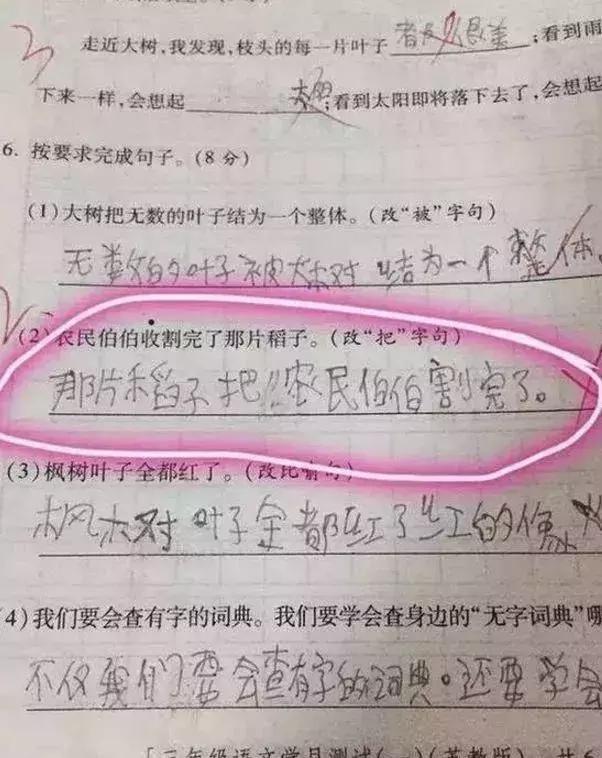 走近大树,我发现,枝头的每一片叶子 都很美 ;看到雨
下来一样,会想起 ;看到太阳即将落下去了,会想起
6. 按要求完成句子。(8分)
(1)大树把无数的叶子结为一个整体。(改“被”字句)
无数的叶子被大树结为一个整体。
(2)农民伯伯收割完了那片稻子。(改“把”字句)
那片稻子把农民伯伯割完了。
(3)枫树叶子全都红了。(改比喻句)
枫树叶子全都红了红的像火
4)我们要会查有字的词典。我们要学会查身边的“无字词典”
不仅我们要会查有字的词典。还要学会
[三年级语文学月测试(一)(苏教版) 共6